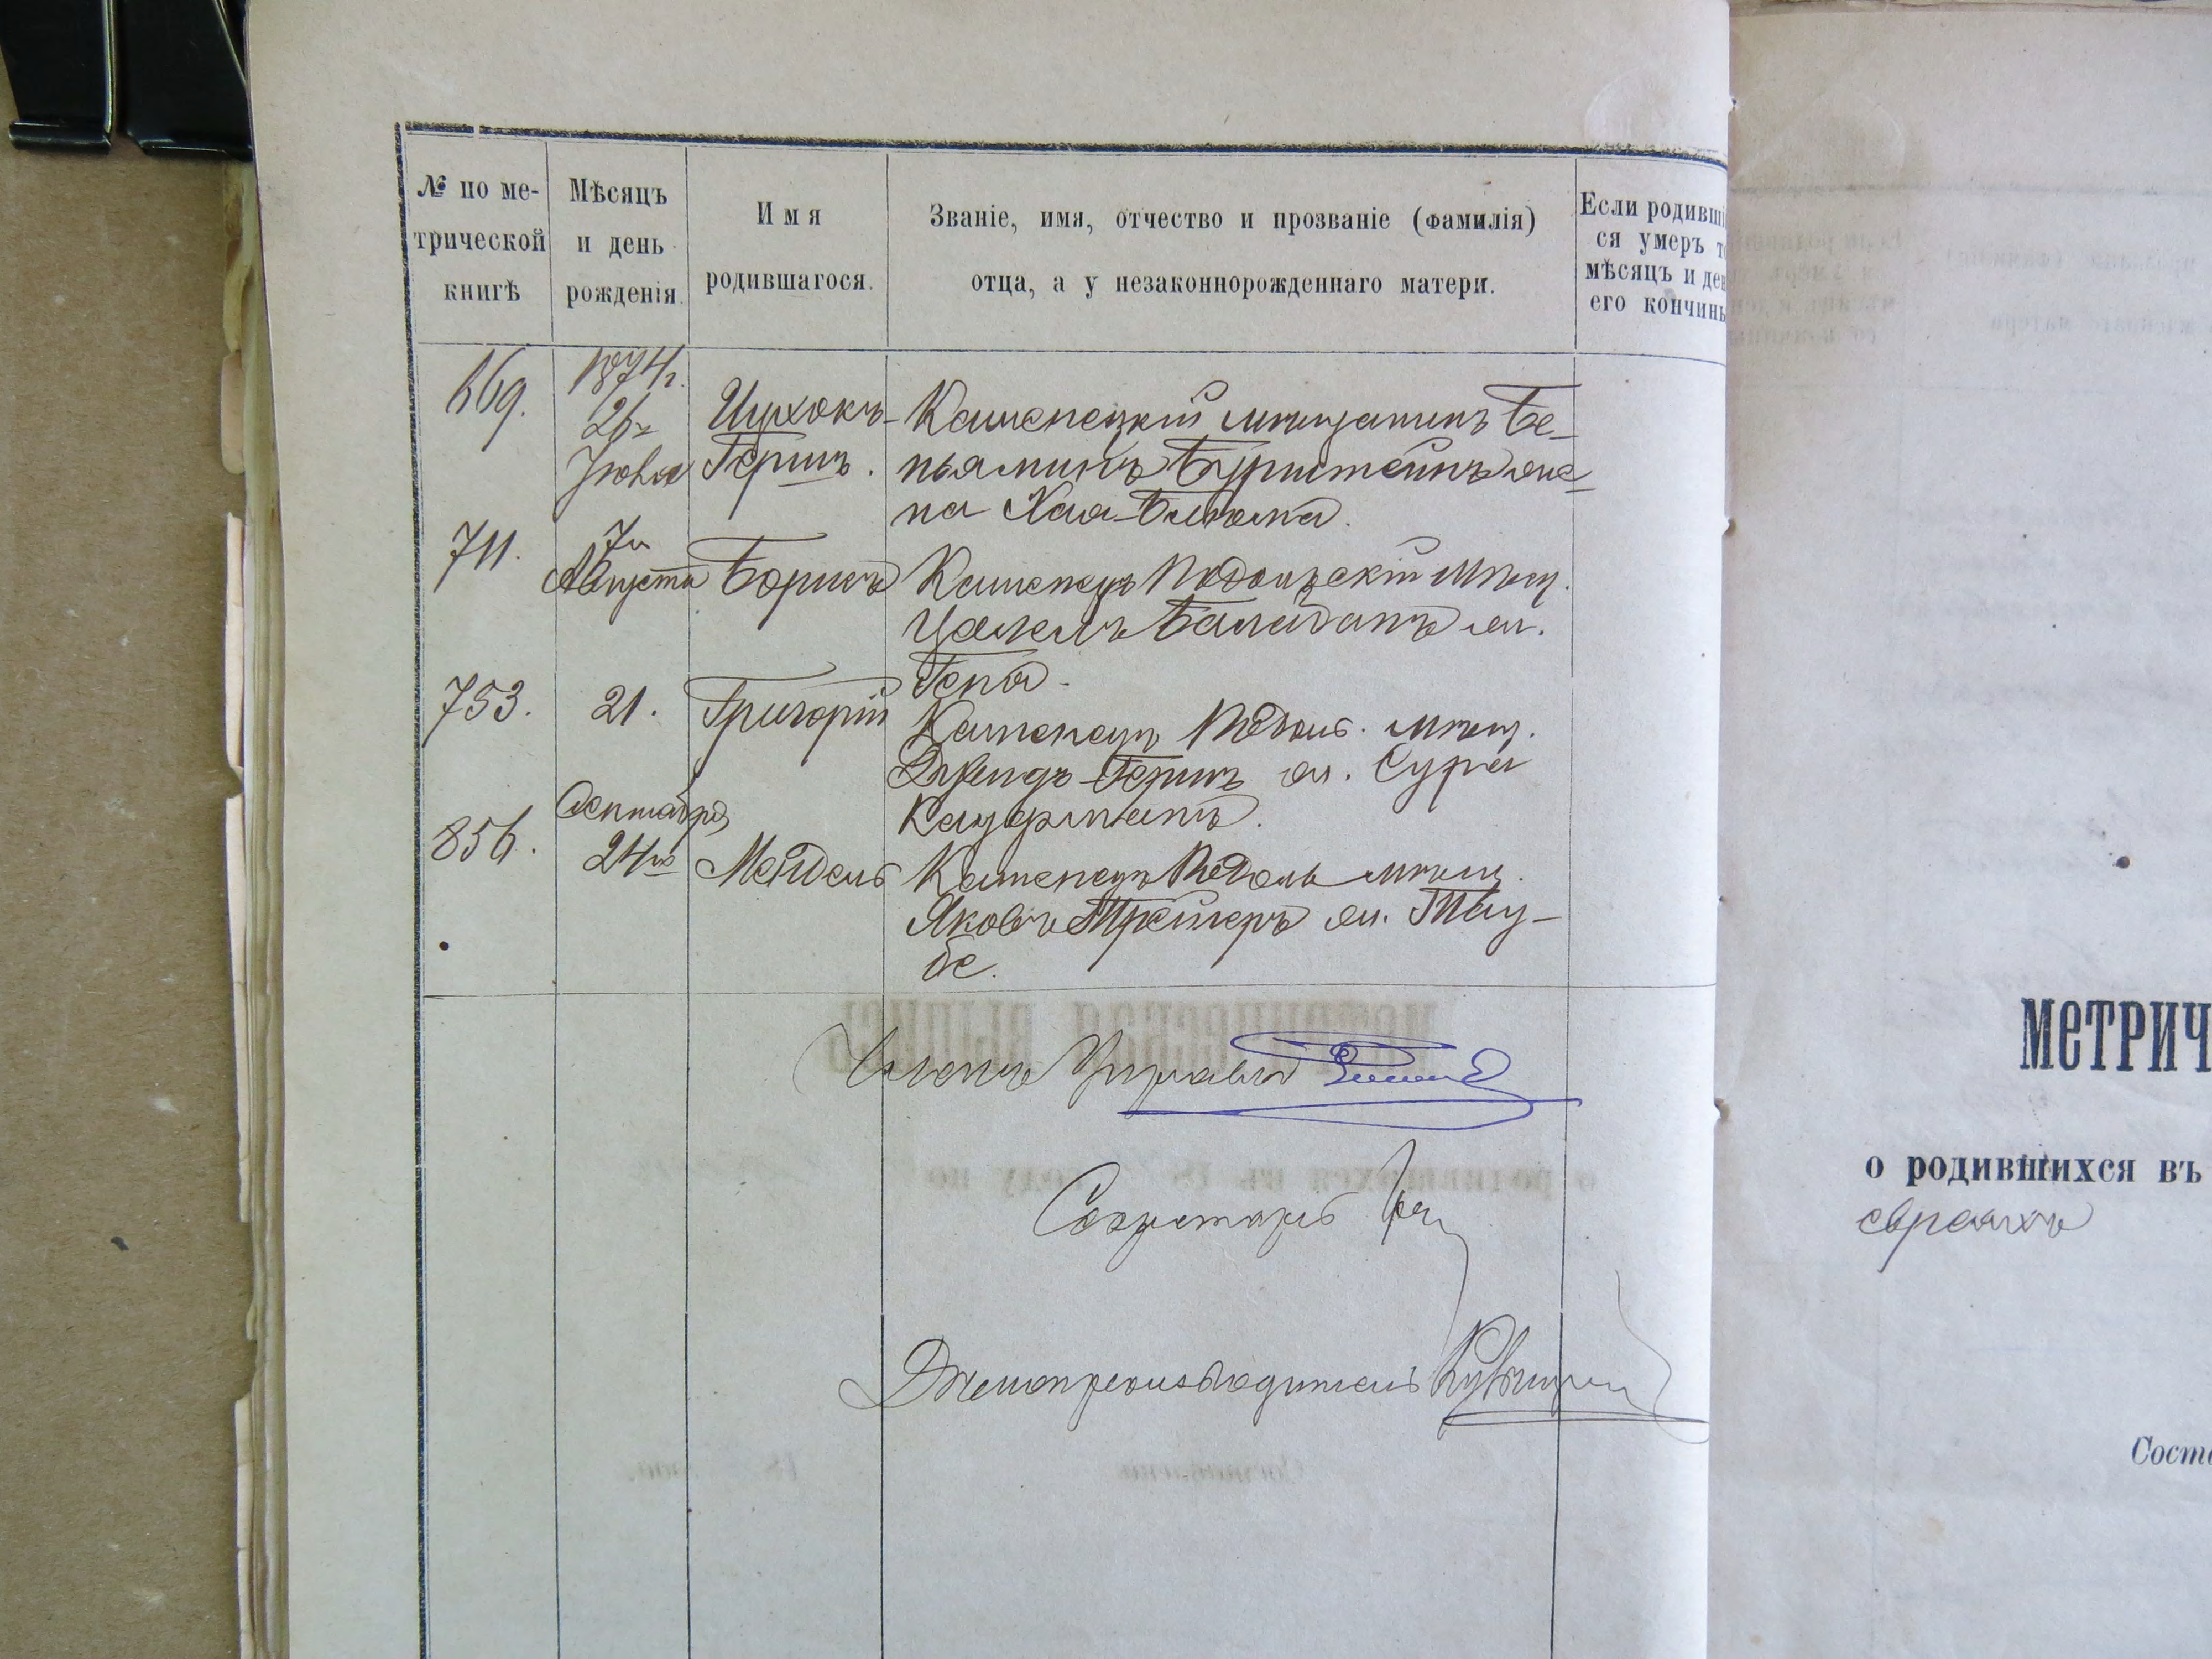 № по ме-
трической
книгѣ
Мѣсяцъ
и день
рожденія.
Имя
родившагося.
Званіе, имя, отчество и прозваніе (фамилія)
отца, а у незаконнорожденнаго матери.
Если родивші
ся умеръ то
мѣсяцъ и ден
его кончины
669.
1874 г.
26го
Іюля
Ицхокъ-
Гершъ.
Каменецкій мѣщанинъ Бе-
ньяминъ Бурштейнъ же-
на Хая-
711.
7го
Августа
Борисъ
Каменецъ Подольскій мѣщ.
ж.
Геня.
753.
21.
Григорій
Каменецъ Подоль. мѣщ.
Гершъ ж. Сура
Кауфманъ.
856.
Сентября
24го
Мендель
Каменецъ Подоль мѣщ.
Яковъ ж. Тау-
бе.
Членъ Управы
Секретарь
Дѣлопроизводитель
МЕТРИЧ
о родившихся въ
евреяхъ
Соста